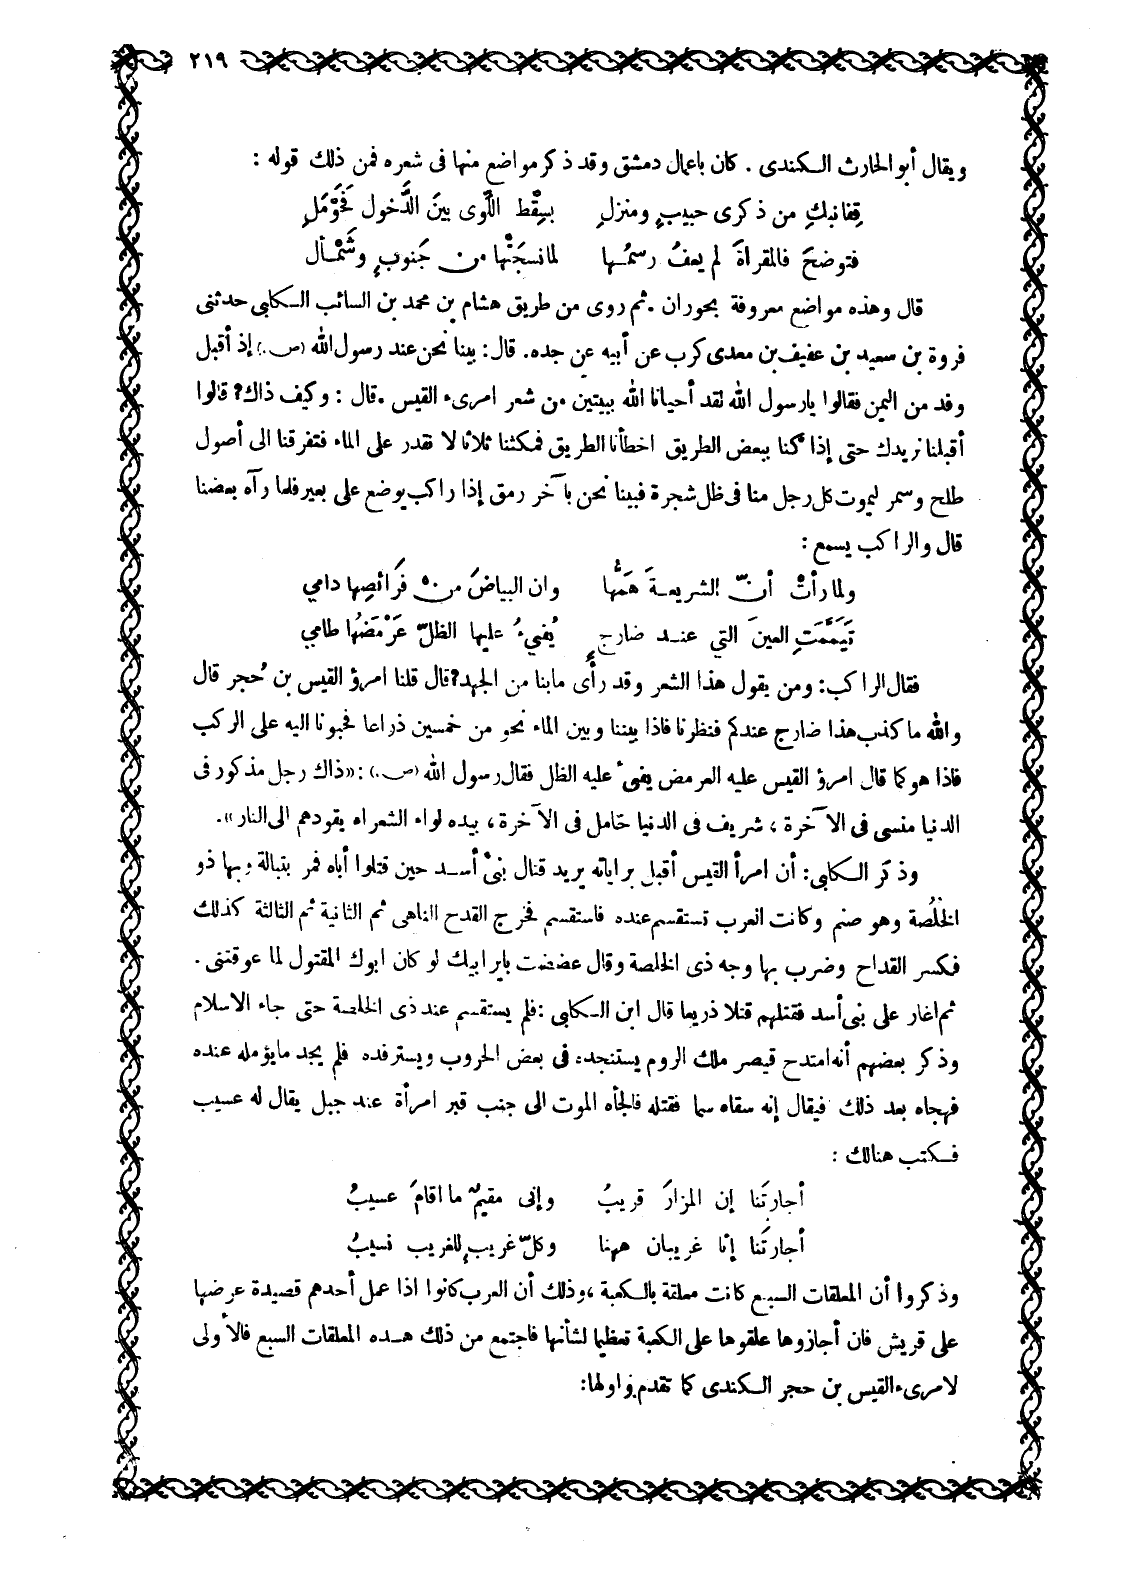 ٢١٩
ويقال أبو الحارث الكندى . كان باعمال دمشق وقد ذكر مواضع منها فى شعره فمن ذلك قوله :
قِفا نبكِ من ذكرى حبيبٍ ومنزلٍ بسِقْط اللَّوى بينَ الدَّخول فَحَوْمَلِ
فتوضحَ فالمقراةَ لم يعفُ رسمُـها لما نسجَتْها من جَنوبٍ وشَمْـأل
قال وهذه مواضع معروفة بحوران . ثم روى من طريق هشام بن محمد بن السائب الكلبى حدثنى
فروة بن سعيد بن عفيف بن معدى كرب عن أبيه عن جده . قال : بينا نحن عند رسول الله (ص.) إذ أقبل
وفد من اليمن فقالوا يا رسول الله لقد أحيانا الله ببيتين من شعر امرىء القيس . قال : وكيف ذاك؟ قالوا
أقبلنا نريدك حتى إذا كنا ببعض الطريق اخطأنا الطريق فمكثنا ثلاثا لا نقدر على الماء فتفرقنا الى أصول
طلح وسمر ليموت كل رجل منا فى ظل شجرة فبينا نحن بآخر رمق إذا راكب يوضع على بعير فلما رآه بعضنا
قال والراكب يسمع :
ولما رأتْ أنّ الشريعـةَ هَمُّها وان البياضَ من فرَائصِها دامي
تَيَمَّمَتِ العينَ التي عنـد ضارج يُفىءُ عليها الظلّ عَرْمَضُها طامي
فقال الراكب : ومن يقول هذا الشعر وقد رأى ما بنا من الجهد؟ قال قلنا امرؤ القيس بن حُجر قال
والله ما كذب هذا ضارج عندكم فنظرنا فاذا بيننا وبين الماء نحو من خمسين ذراعا فحبونا اليه على الركب
فاذا هو كما قال امرؤ القيس عليه العرمض يفىء عليه الظل فقال رسول الله (ص.) : «ذاك رجل مذكور فى
الدنيا منسى فى الآخرة ، شريف فى الدنيا خامل فى الآخرة ، بيده لواء الشعراء يقودهم الى النار» .
وذكر الكلبى : أن امرأ القيس أقبل براياته يريد قتال بنى أسد حين قتلوا أباه فمر بتبالة وبها ذو
الخلُصة وهو صنم وكانت العرب تستقسم عنده فاستقسم فخرج القدح الناهى ثم الثانية ثم الثالثة كذلك
فكسر القداح وضرب بها وجه ذى الخلصة وقال عضضت باير ابيك لو كان ابوك المقتول لما عوقتنى .
ثم اغار على بنى أسد فقتلهم قتلا ذريعا قال ابن الكلبى : فلم يستقسم عند ذى الخلصة حتى جاء الاسلام
وذكر بعضهم أنه امتدح قيصر ملك الروم يستنجده فى بعض الحروب ويسترفده فلم يجد ما يؤمله عنده
فهجاه بعد ذلك فيقال إنه سقاه سما فقتله فالجأه الموت الى جنب قبر امرأة عند جبل يقال له عسيب
فكتب هنالك :
أجارتَنا إن المزارَ قريبُ وإنى مقيمٌ ما اقامَ عسيبُ
أجارتَنا إنا غريبان ههنا وكلّ غريبٍ للغريب نسيبُ
وذكروا أن المعلقات السبع كانت معلقة بالكعبة ، وذلك أن العرب كانوا اذا عمل أحدهم قصيدة عرضها
على قريش فان أجازوها علقوها على الكعبة تعظيما لشأنها فاجتمع من ذلك هـذه المعلقات السبع فالأولى
لامرىء القيس بن حجر الكندى كما تقدم واولها :